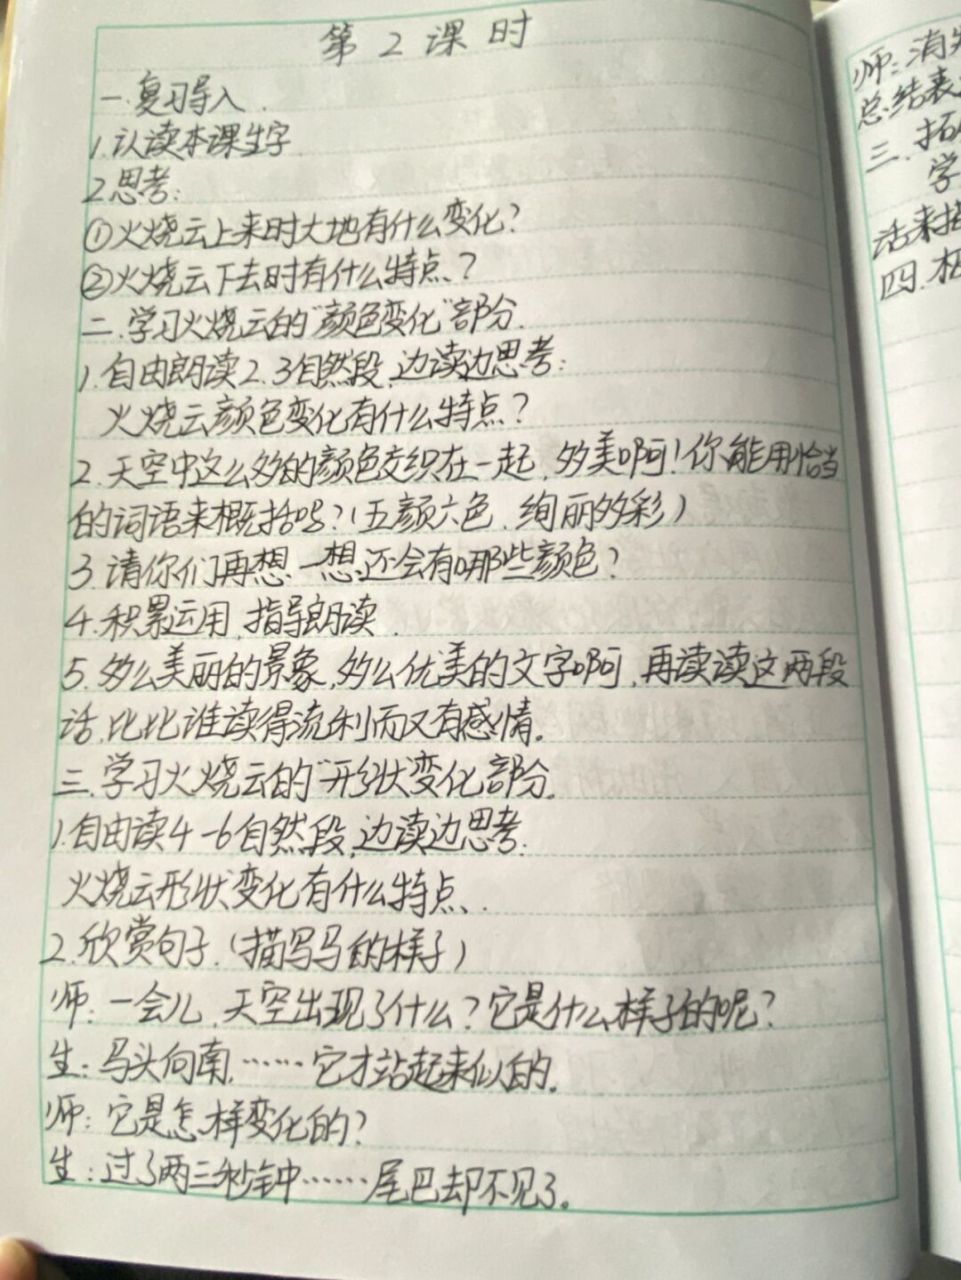 第2课时
一.复习导入.
1.认读本课生字
2.思考:
①火烧云上来时大地有什么变化?
②火烧云下去时有什么特点?
二.学习火烧云的"颜色变化"部分.
1.自由朗读2.3自然段,边读边思考:
火烧云颜色变化有什么特点?
2.天空中这么多的颜色交织在一起,多美啊!你能用恰当
的词语来概括吗?(五颜六色.绚丽多彩)
3.请你们再想一想还会有哪些颜色?
4.积累运用.指导朗读.
5.多么美丽的景象,多么优美的文字啊,再读读这两段
话,比比谁读得流利而又有感情.
三.学习火烧云的"形状"变化部分.
1.自由读4-6自然段,边读边思考.
火烧云形状变化有什么特点.
2.欣赏句子.(描写马的样子)
师:一会儿,天空出现了什么?它是什么样子的呢?
生:马头向南,……它才站起来似的.
师:它是怎样变化的?
生:过了两三秒钟……尾巴却不见了。
师:消
总结表
三.拓
学
话来描
四.